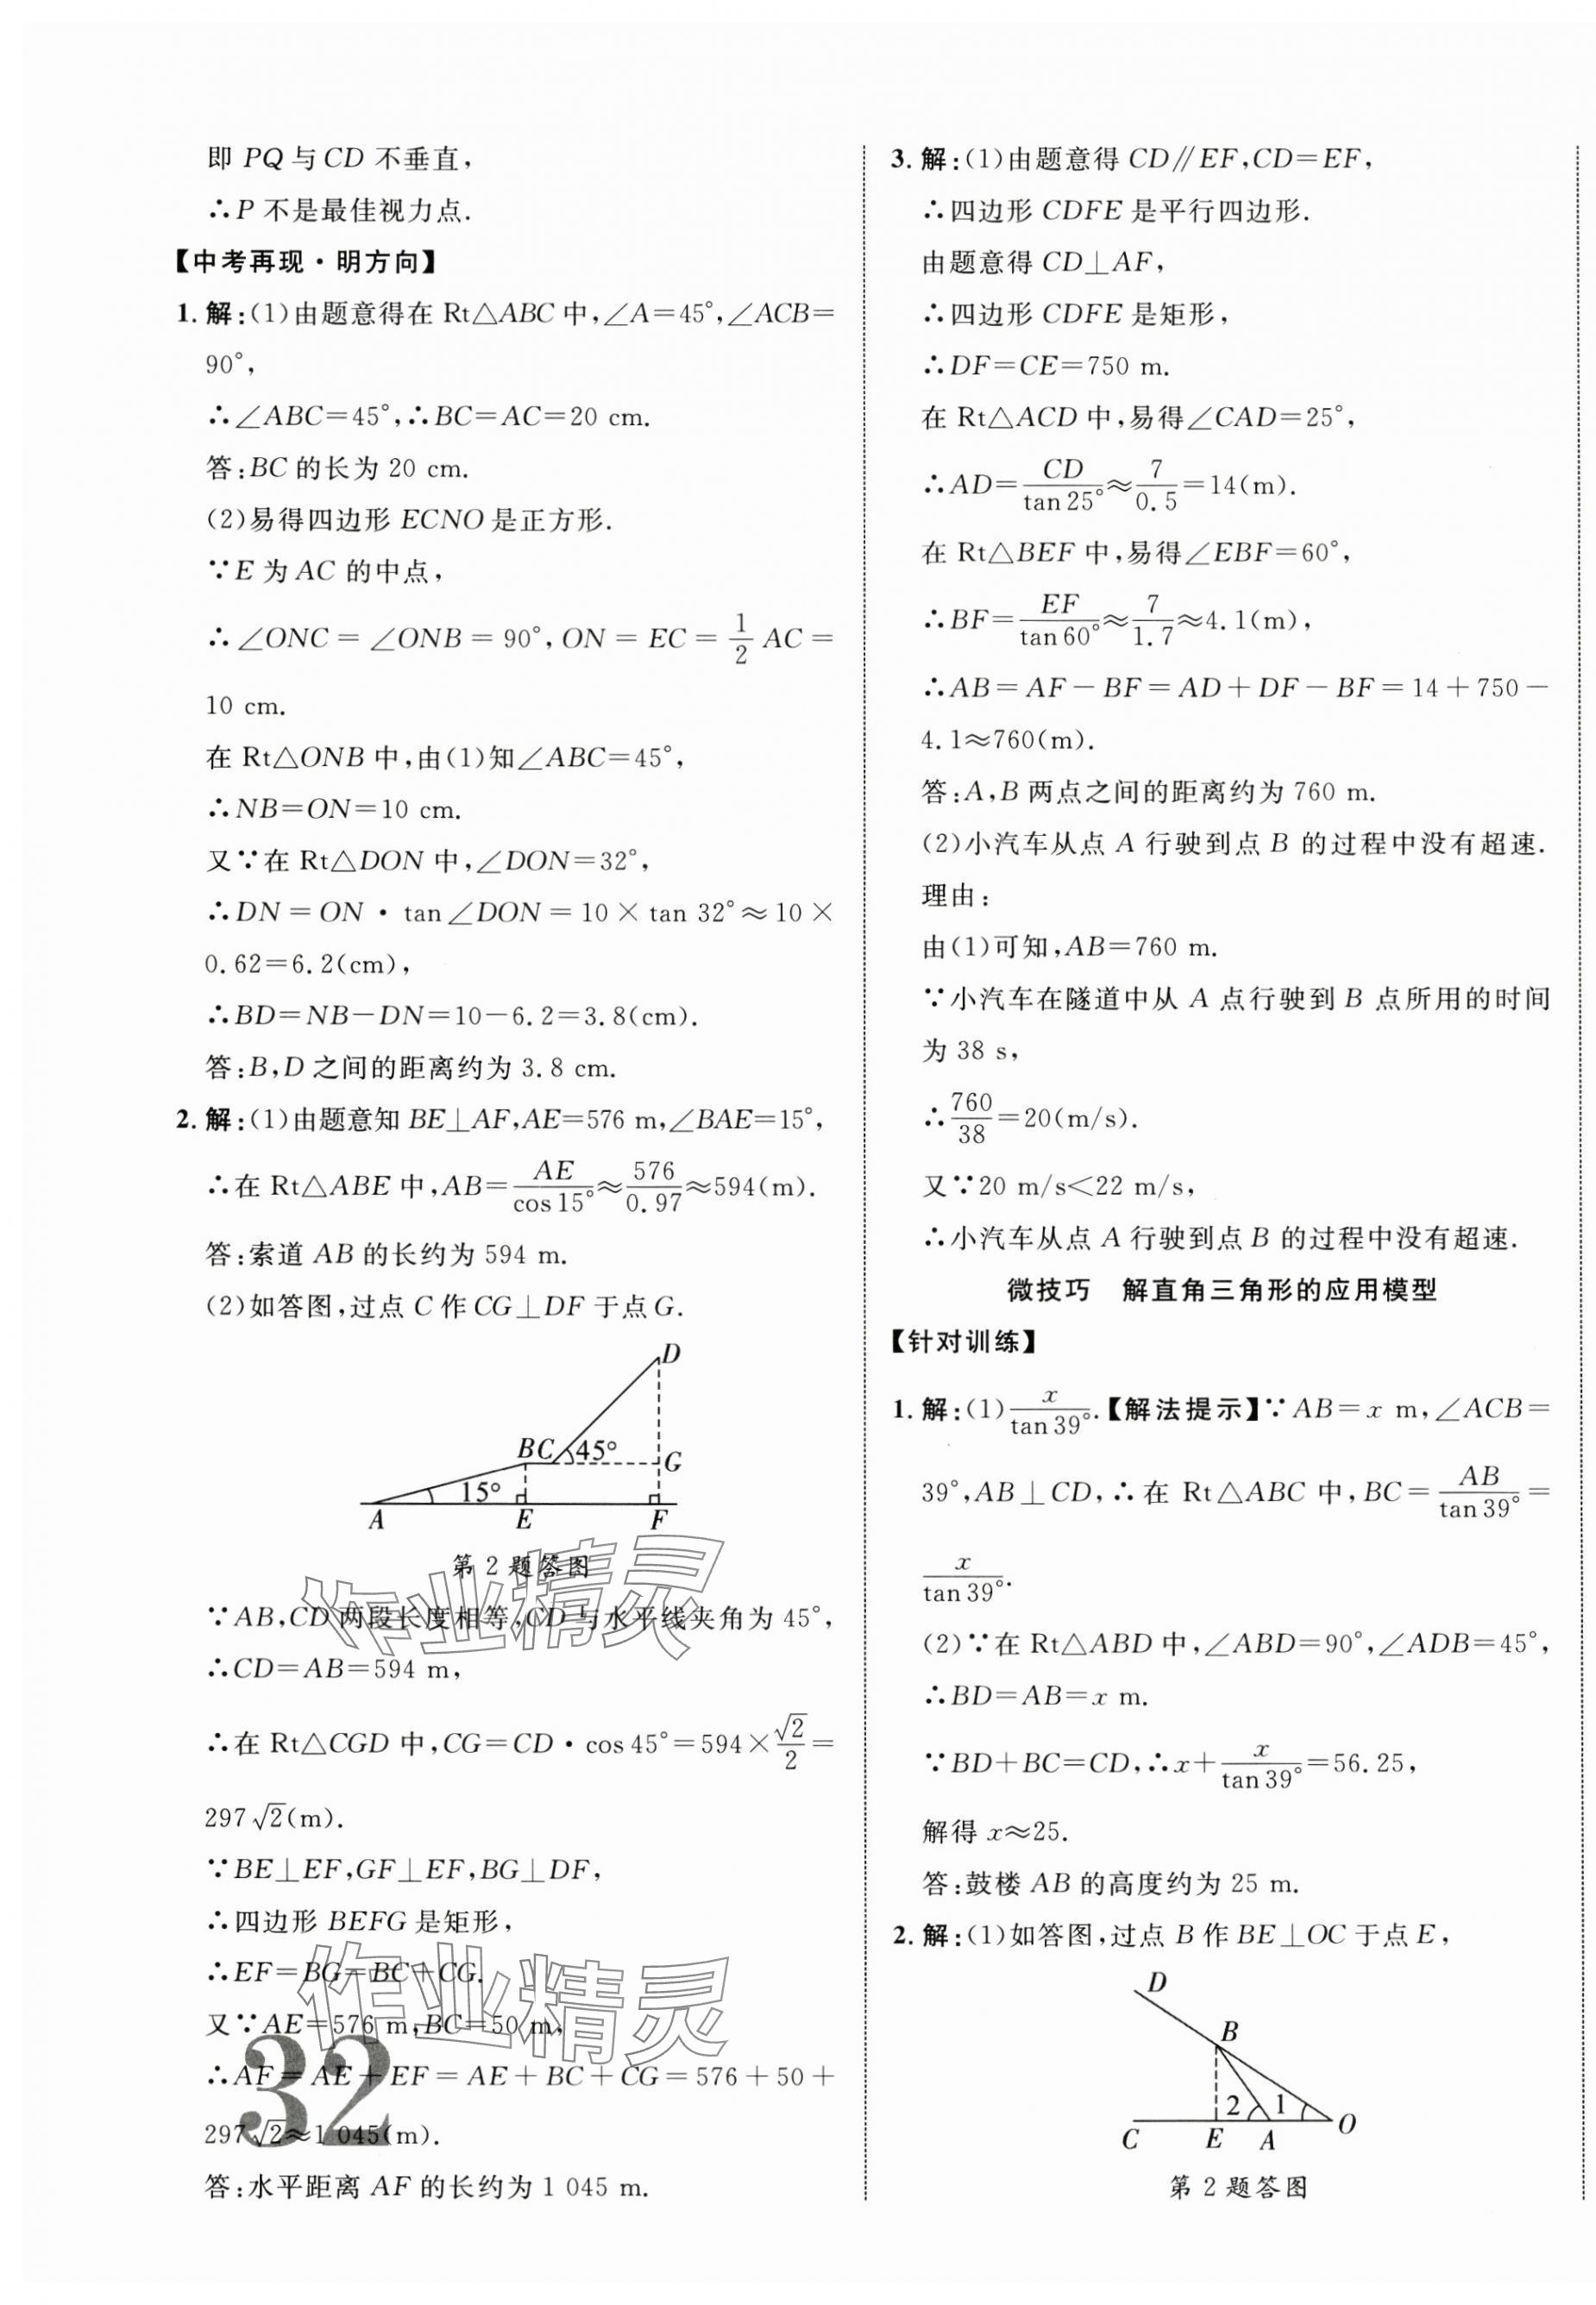 即 PQ 与 CD 不垂直,
∴P 不是最佳视力点.
【中考再现·明方向】
1. 解:(1)由题意得在 Rt△ABC 中,∠A=45°,∠ACB=
90°,
∴∠ABC=45°,∴BC=AC=20 cm.
答:BC 的长为 20 cm.
(2)易得四边形 ECNO 是正方形.
∵E 为 AC 的中点,
∴∠ONC=∠ONB=90°,ON=EC=1/2 AC=
10 cm.
在 Rt△ONB 中,由(1)知∠ABC=45°,
∴NB=ON=10 cm.
又∵在 Rt△DON 中,∠DON=32°,
∴DN=ON·tan∠DON=10×tan 32°≈10×
0.62=6.2(cm),
∴BD=NB-DN=10-6.2=3.8(cm).
答:B,D 之间的距离约为 3.8 cm.
2. 解:(1)由题意知 BE⊥AF,AE=576 m,∠BAE=15°,
∴在 Rt△ABE 中,AB=AE/cos 15°≈576/0.97≈594(m).
答:索道 AB 的长约为 594 m.
(2)如答图,过点 C 作 CG⊥DF 于点 G.
D
B C 45° G
15°
A E F
第 2 题答图
∵AB,CD 两段长度相等,CD 与水平线夹角为 45°,
∴CD=AB=594 m,
∴在 Rt△CGD 中,CG=CD·cos 45°=594×√2/2=
297√2(m).
∵BE⊥EF,GF⊥EF,BG⊥DF,
∴四边形 BEFG 是矩形,
∴EF=BG=BC+CG.
又∵AE=576 m,BC=50 m,
∴AF=AE+EF=AE+BC+CG=576+50+
297√2≈1 045(m).
答:水平距离 AF 的长约为 1 045 m.
32
作业精灵
作业精灵
3. 解:(1)由题意得 CD∥EF,CD=EF,
∴四边形 CDFE 是平行四边形.
由题意得 CD⊥AF,
∴四边形 CDFE 是矩形,
∴DF=CE=750 m.
在 Rt△ACD 中,易得∠CAD=25°,
∴AD=CD/tan 25°≈7/0.5=14(m).
在 Rt△BEF 中,易得∠EBF=60°,
∴BF=EF/tan 60°≈7/1.7≈4.1(m),
∴AB=AF-BF=AD+DF-BF=14+750-
4.1≈760(m).
答:A,B 两点之间的距离约为 760 m.
(2)小汽车从点 A 行驶到点 B 的过程中没有超速.
理由:
由(1)可知,AB=760 m.
∵小汽车在隧道中从 A 点行驶到 B 点所用的时间
为 38 s,
∴760/38=20(m/s).
又∵20 m/s<22 m/s,
∴小汽车从点 A 行驶到点 B 的过程中没有超速.
微技巧 解直角三角形的应用模型
【针对训练】
1. 解:(1)x/tan 39°.【解法提示】∵AB=x m,∠ACB=
39°,AB⊥CD,∴在 Rt△ABC 中,BC=AB/tan 39°=
x/tan 39°.
(2)∵在 Rt△ABD 中,∠ABD=90°,∠ADB=45°,
∴BD=AB=x m.
∵BD+BC=CD,∴x+x/tan 39°=56.25,
解得 x≈25.
答:鼓楼 AB 的高度约为 25 m.
2. 解:(1)如答图,过点 B 作 BE⊥OC 于点 E,
D
B
2 1
C E A O
第 2 题答图